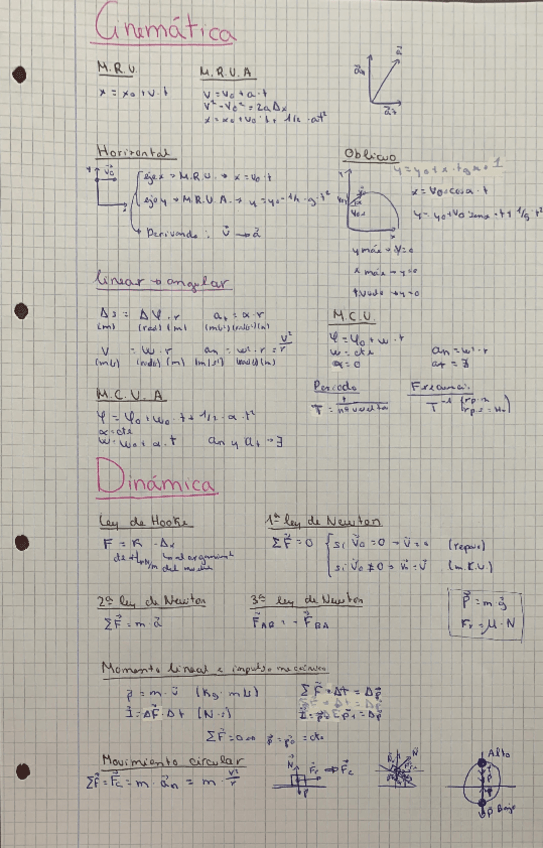 Cinemática
M.R.U
x = x₀ + v · t
M.R.U.A
v = v₀ + a · t
v² - v₀² = 2aΔx
x = x₀ + v₀ · t + 1/2 · at²
Horizontal
eje x → M.R.U. → x = v₀ · t
eje y → M.R.U.A. → y = y₀ - 1/2 · g · t²
Derivando: v⃗ → a⃗
Oblicuo
x = v₀ · cos α · t
y máx → Vy = 0
x máx → y = 0
t vuelo → y = 0
linear → angular
Δs = Δφ · r
(m) (rad) (m)
at = α · r
V = w · r
an = w² · r = v²/r
M.C.U.
φ = φ₀ + w · t
w = cte
α = 0
an = w² · r
at = ∄
M.C.U.A
φ = φ₀ + w₀ · t + 1/2 · α · t²
α = cte
w = w₀ + α · t
an y at → ∃
Periodo
T = t / nº vueltas
Frecuencia
T⁻¹
Dinámica
Ley de Hooke
F = K · Δx
1ª ley de Newton
ΣF⃗ = 0
si v⃗₀ = 0 → v⃗ = 0 (reposo)
si v⃗₀ ≠ 0 → (M.R.U.)
2ª ley de Newton
ΣF⃗ = m · a⃗
3ª ley de Newton
F⃗AB = - F⃗BA
P⃗ = m · g⃗
Fr = μ · N
Momento lineal e impulso mecánico
p⃗ = m · v⃗ (Kg · m/s)
I⃗ = ΔF⃗ · Δt (N · s)
ΣF⃗ · Δt = Δp⃗
ΣF⃗ = 0 → p⃗ = p⃗₀ = cte
Movimiento circular
ΣF⃗ = F⃗c = m · a⃗n = m · v²/r
Alto
Bajo